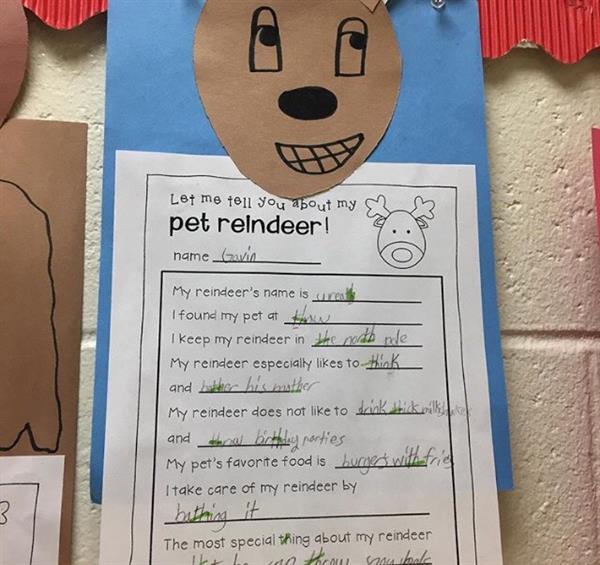 Let me tell you about my
pet reindeer!
name Gavin
My reindeer's name is wreath
I found my pet at
I keep my reindeer in the north pole
My reindeer especially likes to think
and bother his mother
My reindeer does not like to drink thick milkshakes
and throw birthday parties
My pet's favorite food is burgers with fries
I take care of my reindeer by
bathing it
The most special thing about my reindeer
he can throw snow balls
3